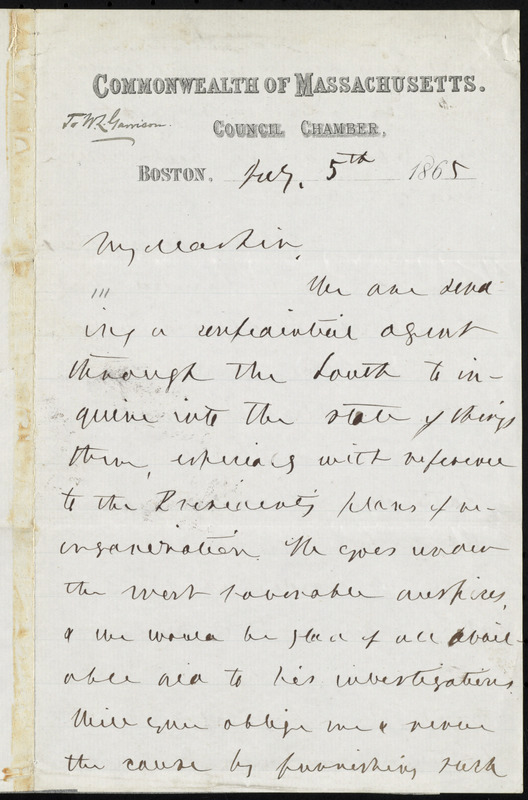 COMMONWEALTH OF MASSACHUSETTS.
To W. L. Garrison.
COUNCIL CHAMBER,
BOSTON, July, 5th 1865
My dear Sir,
We are send
ing a confidential agent
through the South to in-
quire into the state of things
there, especially with reference
to the President's plans of re-
organization. He goes under
the most favorable auspices,
& we would be glad of all avail-
able aid to his investigations.
Will you oblige me & serve
the cause by furnishing such